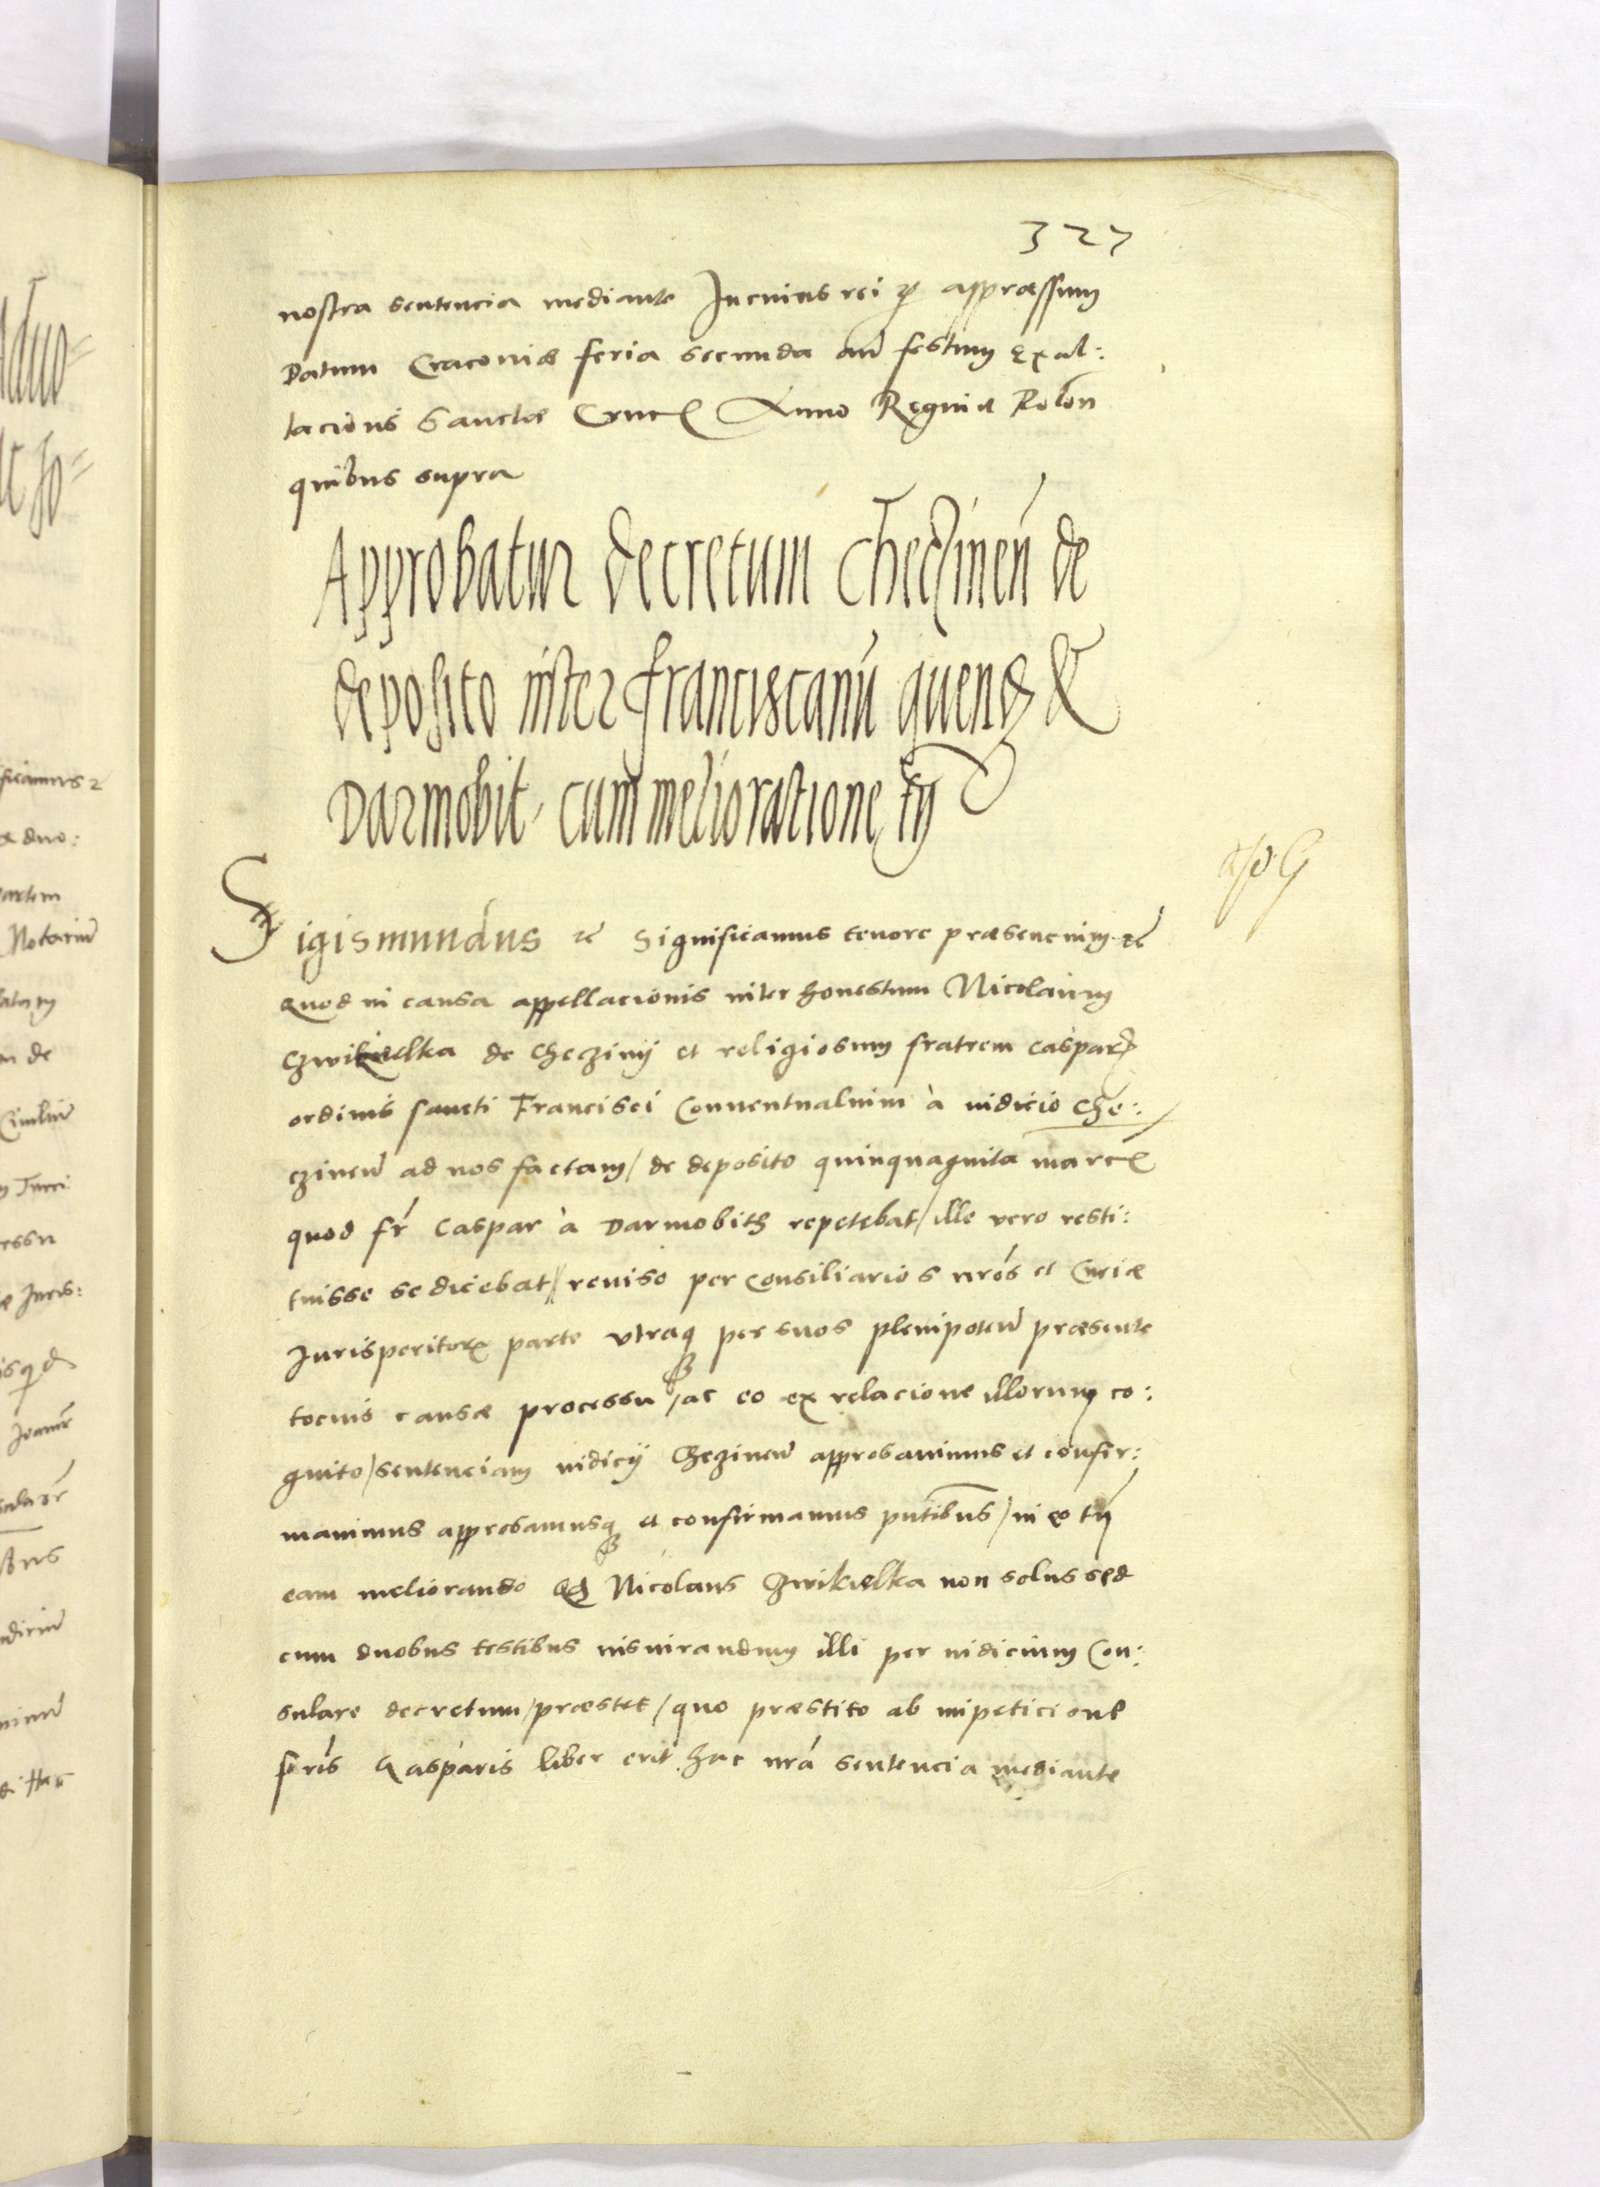 327
nostra sentencia mediante In cuius rei appraessum
Datum Cracoviæ feria secunda an̄ festum Exal:
tacionis Sanctæ Cruc Anno Regniq Polon
quibus supra
Approbatur decretum Checzinen̄ de
deposito inter franciscanū quend &
Darmobit, cum melioratione tn̄
Sigismundus &c Significamus tenore præsencium &c
Quod in causa appellacionis inter honestum Nicolaum
Czwikielka de Checziny et religiosum fratrem Caspar
ordinis sancti Francisci Conventualium à iudicio Che:
czinen̄ ad nos factam / de deposito quinquaginta marc
quod fr̄ Caspar à Darmobith repetebat / ille vero resti:
tuisse se dicebat / reviso per Consiliarios nr̄os et Curiæ
Jurisperitor parte utraq per suos plenipoten̄ præsente
tocius causæ processu / ac eo ex relacione illorum co:
gnito / sentenciam iudicij Checzinen̄ approbavimus et confir:
mavimus approbamusq et confirmamus pn̄tibus / in eo tn̄
eam meliorando Nicolaus Czwikielka non solus sed
cum duobus testibus iusiurandum illi per iudicium Con:
sulare decretum / præstet / quo præstito ab impeticione
fr̄is Casparis liber erit hac nr̄a sentencia mediante